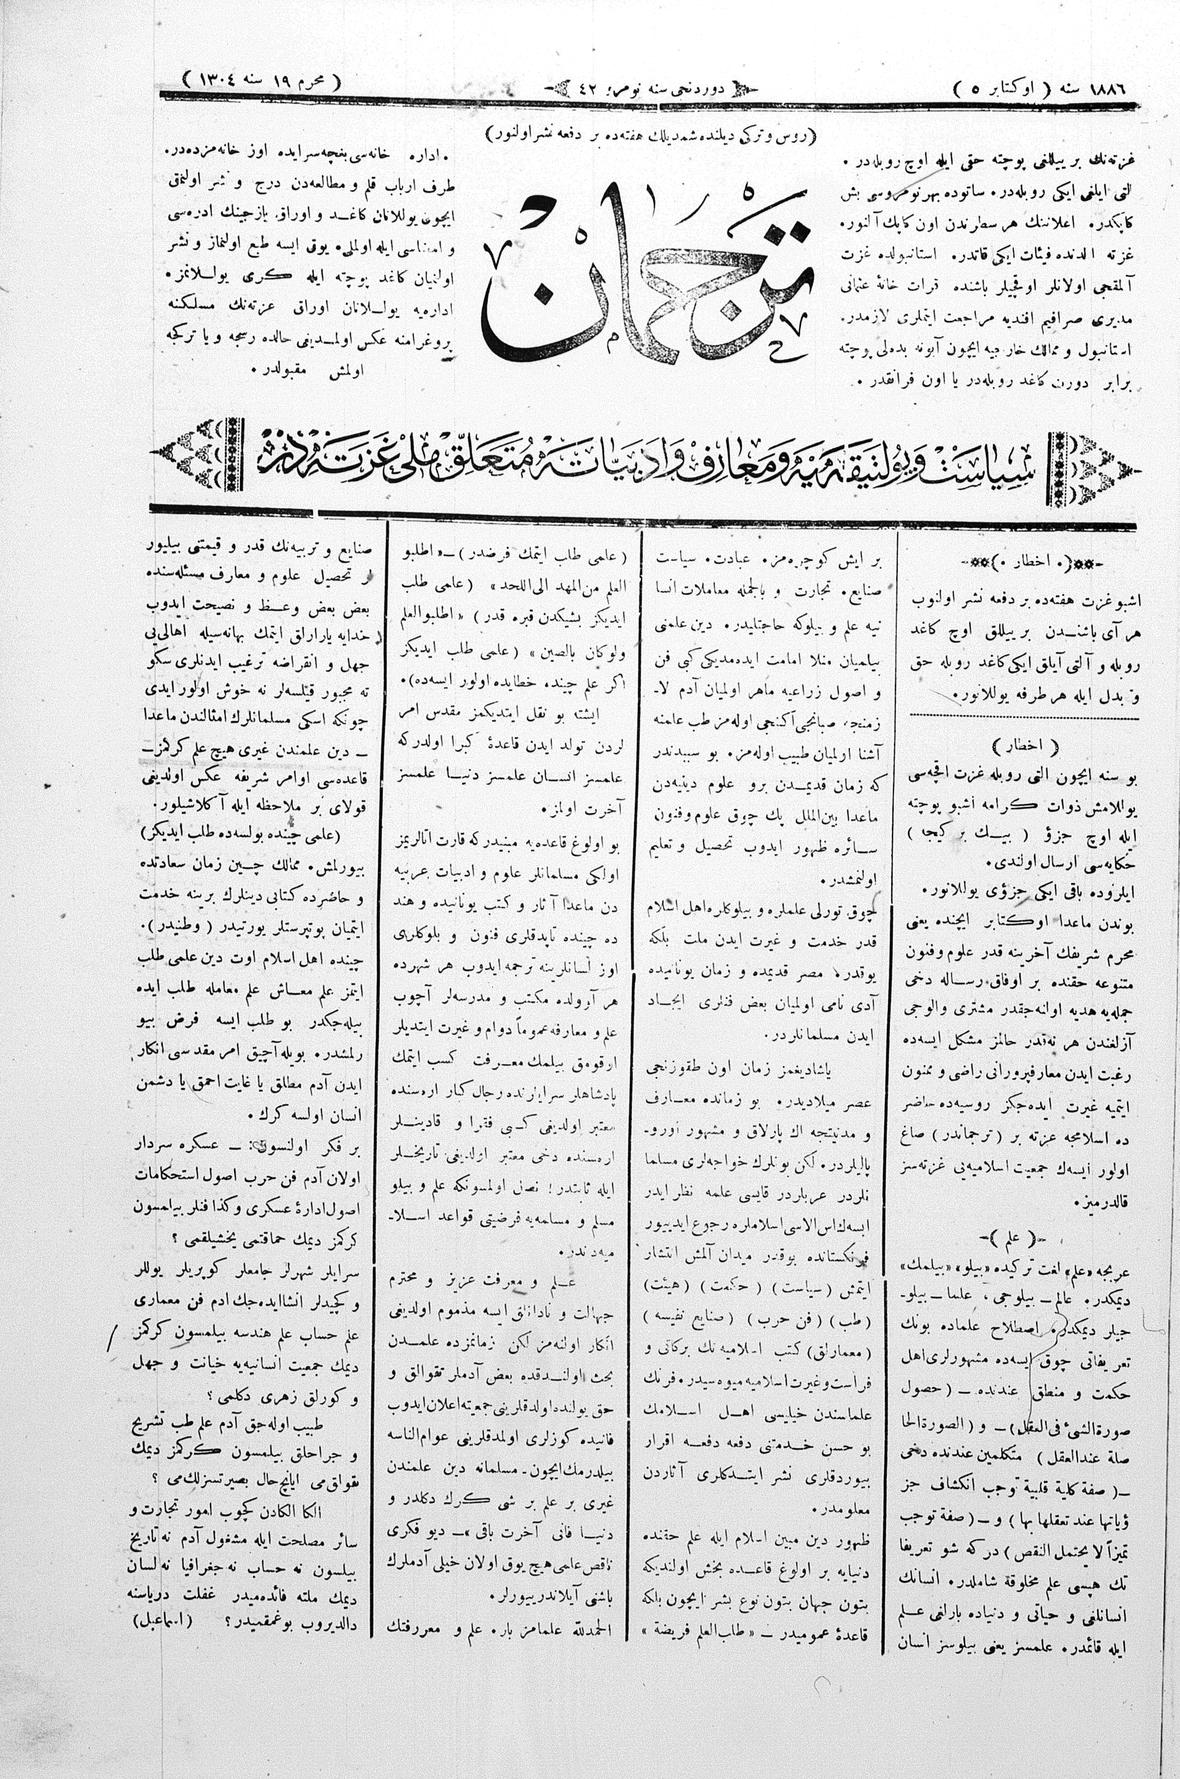 ١٨٨٦ سنه ( اوكتابر ٥ )
دوردنجی سنه نومرو ٤٢
( محرم ١٩ سنه ١٣٠٤ )
(روس و تركی دیلنده شمدیلك هفته‌ده بر دفعه نشر اولنور)
غزته‌نك بر ییللغی پوچته حقی ایله اوچ روبله‌در .
التی ایلغی ایكی روبله‌در . ساتوده بهر نومروسی بش
كاپكدر . اعلاننك هر سطرندن اون كاپك آلنور .
غزته الدنده فیئات ایكی قاتدر . استانبولده غزت
آلمقجی اولانلر اوقچیلر باشنده ذرات خانۀ عثمانی
مدیری صرافیم افندیه مراجعت ایتملری لازمدر .
استانبول و ممالك خارجیه ایچون آبونه بدلی پوچته
برابر دورت كاغد روبله‌در یا اون فرانقدر .
ترجمان
. اداره خانه‌سی بغچه‌سرایده اوز خانه‌مزده‌در .
طرف ارباب قلم و مطالعه‌دن درج و نشر اولنمق
ایچون یوللانان كاغد و اوراق یازیجینك ادره‌سی
و امضاسی ایله اولملی . یوق ایسه طبع اولنماز و نشر
اولنمیان كاغد پوچته ایله كری یوللانمز .
اداره‌یه یوللانان اوراق غزته‌نك مسلكنه
پروغرامنه عكس اولمدیغی حالده رسجه و یا تركجه
اولمش مقبولدر .
سیاست و پولتیقه مدنیه و معارف و ادبیاته متعلق ملی غزته‌در
( . اخطار . )
اشبو غزت هفته‌ده بر دفعه نشر اولنوب
هر آی باشندن بر ییللق اوچ كاغد
روبله و آلتی آیلق ایكی كاغد روبله حق
و بدل ایله هر طرفه یوللانور .
( اخطار )
بو سنه ایچون التی روبله غزت اقچه‌سی
یوللامش ذوات كرامه اشبو پوچته
ایله اوچ جزؤ ( بیك بر كیجا )
حكایه‌سی ارسال اولندی .
ایلروده باقی ایكی جزؤی یوللانور .
بوندن ماعدا اوكتابر ایچنده یعنی
محرم شریفك آخرینه قدر علوم و فنون
متنوعه حقنده بر اوفاق رساله دخی
جمله‌یه هدیه اولنه‌جقدر مشتری و الوجی
آزلغندن هر نه‌قدر حالمز مشكل ایسه‌ده
رغبت ایدن معارفپرورانی راضی و ممنون
ایتمیه غیرت ایده‌جكز روسیه‌ده حاضر
ده اسلامجه غزته بر (ترجماندر) صاغ
اولور ایسه‌ك جمعیت اسلامیه‌یی غزته‌سز
قالدرمیز .
-( علم )-
عربجه «علم» لغت تركیده «بیلو» «بیلمك»
دیمكدر . عالم ـ بیلوجی ، علما ـ بیلو‌-
جیلر دیمكدر . اصطلاح علماده بونك
تعریفاتی چوق ایسه‌ده مشهورلری اهل
حكمت و منطق عندنده ـ (حصول
صورة الشئ فی العقل) ـ و (الصورة الحا
صلة عند العقل) متكلمین عندنده دخی
ـ( صفة كلیة قلبیة توجب انكشاف جز
ؤیاتها عند تعقلها بها) و ـ (صفة توجب
تمیزاً لا یحتمل النقص ) در كه شو تعریفا
تك هپسی علم مخلوقة شاملدر . انسانك
انسانلغی و حیاتی و دنیاده یارلغی علم
ایله قائمدر . علمسز یعنی بیلوسز انسان
بر ایش كوچره‌مز . عبادت . سیاست
صنایع . تجارت و بالجمله معاملات انسا
نیه علم و بیلوكه حاجتلیدر . دین علمنی
بیلمیان منلا امامت ایده‌مدیكی كبی فن
و اصول زراعیه ماهر اولمیان آدم لا‌-
زمنجه صبانجی آكنجی اوله‌مز طب علمنه
آشنا اولمیان طبیب اوله‌مز . بو سببدندر
كه زمان قدیمدن برو علوم دینیه‌دن
ماعدا بین‌الملل پك چوق علوم و فنون
سائره ظهور ایدوب تحصیل و تعلیم
اولنمشدر .
چوق تورلی علملره و بیلوكلره اهل اسلام
قدر خدمت و غیرت ایدن ملت بلكه
یوقدر . مصر قدیمده و زمان یونانیده
آدی نامی اولمیان بعض فنلری ایجاد
ایدن مسلمانلردر .
یاشادیغمز زمان اون طقوزنجی
عصر میلادیدر . بو زمانده معارف
و مدنیتجه اك پارلاق و مشهور اورو‌-
پالیلردر . لكن بونلرك خواجه‌لری مسلما
نلردر عربلردر قایسی علمه نظر ایدر
ایسه‌ك اس‌الاسی اسلاملره رجوع ایدییور
فرنكستانده بوقدر میدان آلمش انتشار
ایتمش (سیاست) (حكمت) (هیئت)
(طب) (فن حرب) (صنایع نفیسه)
(معمارلق) كتب اسلامیه‌نك بركاتی و
فراست و غیرت اسلامیه میوه‌سیدر . فرنك
علماسندن خیلیسی اهل اسلامك
بو حسن خدمتنی دفعه دفعه اقرار
بیوردقلری نشر ایتدكلری آثاردن
معلومدر .
ظهور دین مبین اسلام ایله علم حقنده
دنیایه بر اولوغ قاعده بخش اولندیكه
بتون جهان بتون نوع بشر ایچون بلكه
قاعدۀ عمومیدر ـ « طلب العلم فریضة »
(علمی طلب ایتمك فرضدر) ـ « اطلبو
العلم من المهد الی اللحد» (علمی طلب
ایدیكز بشیكدن قبره قدر) «اطلبوالعلم
ولوكان بالصین» (علمی طلب ایدیكز
اكر علم چینده خطایده اولور ایسه‌ده) .
ایشته بو نقل ایتدیكمز مقدس امر
لردن تولد ایدن قاعدۀ كبرا اولدركه
علمسز انسان علمسز دنیا علمسز
آخرت اولمز .
بو اولوغ قاعده‌یه مبنیدركه قارت اتالریمز
اولكی مسلمانلر علوم و ادبیات عربیه
دن ماعدا آثار و كتب یونانیده و هند
ده چینده تاپدقلری فنون و بلوكلری
اوز لسانلرینه ترجمه ایدوب هر شهرده
هر آرولده مكتب و مدرسه‌لر آچوب
علم و معارفه عموماً دوام و غیرت ایتدیلر
اوقومق بیلمك معرفت كسب ایتمك
پادشاهلر سرایلرنده رجال كبار اره‌سنده
معتبر اولدیغی كبی فقرا و قادینلر
اره‌سنده دخی معتبر اولدیغی تاریخلر
ایله ثابتدر ! نصل اولمسونكه علم و بیلو
مسلم و مسلمه‌یه فرضیتی قواعد اسلا‌-
میه‌دندر .
علم و معرفت عزیز و محترم
جهالت و نادانلق ایسه مذموم اولدیغی
انكار اولنه‌مز لكن زمانمزده علمدن
بحث اولندقده بعض آدملر تقوالق و
حق یولنده اولدقلرینی جمعیته اعلان ایدوب
فانیده كوزلری اولمدقلرینی عوام الناسه
بیلدرمك ایچون ـ مسلمانه دین علمندن
غیری بر علم بر شی كرك دكلدر و
دنیا فانی آخرت باقی» ـ دیو فكری
ناقص علمی هیچ یوق اولان خیلی آدملرك
باشنی آیلاندرییورلر .
الحمدلله علمامز بار . علم و معررفتك
صنایع و تربیه‌نك قدر و قیمتنی بیلیور
لر تحصیل علوم و معارف مسئله‌سنده
بعض بعض وعظ و نصیحت ایدوب
خدایه یاراراق ایتمك بهانه‌سیله اهالی‌یی
جهل و انقراضه ترغیب ایدنلری سكو
ته مجبور قیلسه‌لر نه خوش اولور ایدی
چونكه اسكی مسلمانلرك امثالندن ماعدا
ـ دین علمندن غیری هیچ علم كركمز ـ
قاعده‌سی اوامر شریفه عكس اولدیغی
قولای بر ملاحظه ایله آكلاشیلور .
(علمی چینده بولسه‌ده طلب ایدیكز)
بیورلمش . ممالك چین زمان سعادتده
و حاضرده كتابی دینلرك برینه خدمت
ایتمیان پوتپرستلر یورتیدر (وطنیدر) .
چینده اهل اسلام اوت دین علمی طلب
ایتمز علم معاش علم معامله طلب ایده
بیله‌جكدر بو طلب ایسه فرض بیو
رلمشدر . بویله آچیق امر مقدسی انكار
ایدن آدم مطلق یا غایت احمق یا دشمن
انسان اولسه كرك .
بر فكر اولنسون : ـ عسكره سردار
اولان آدم فن حرب اصول استحكامات
اصول ادارۀ عسكری و كذا فنلر بیلمسون
كركمز دیمك حماقتمی یخشیلقمی ؟
سرایلر شهرلر جامعلر كوپریلر یوللر
و كچیدلر انشا ایده‌جك ادم فن معماری
علم حساب علم هندسه بیلمسون كركمز
دیمك جمعیت انسانیه‌یه خیانت و جهل
و كورلق زهری دكلمی ؟
طبیب اوله‌جق آدم علم طب تشریح
و جراحلق بیلمسون كركمز دیمك
تقوالقمی ایانچ حال بصیرتسزلك‌می ؟
الكا الكادن كچوب امور تجارت و
سائر مصلحت ایله مشغول آدم نه تاریخ
بیلسون نه حساب نه جغرافیا نه لسان
دیمك ملته فائده‌میدر غفلت دریاسنه
دالدیروب بوغمقمیدر ؟ (اسماعیل)